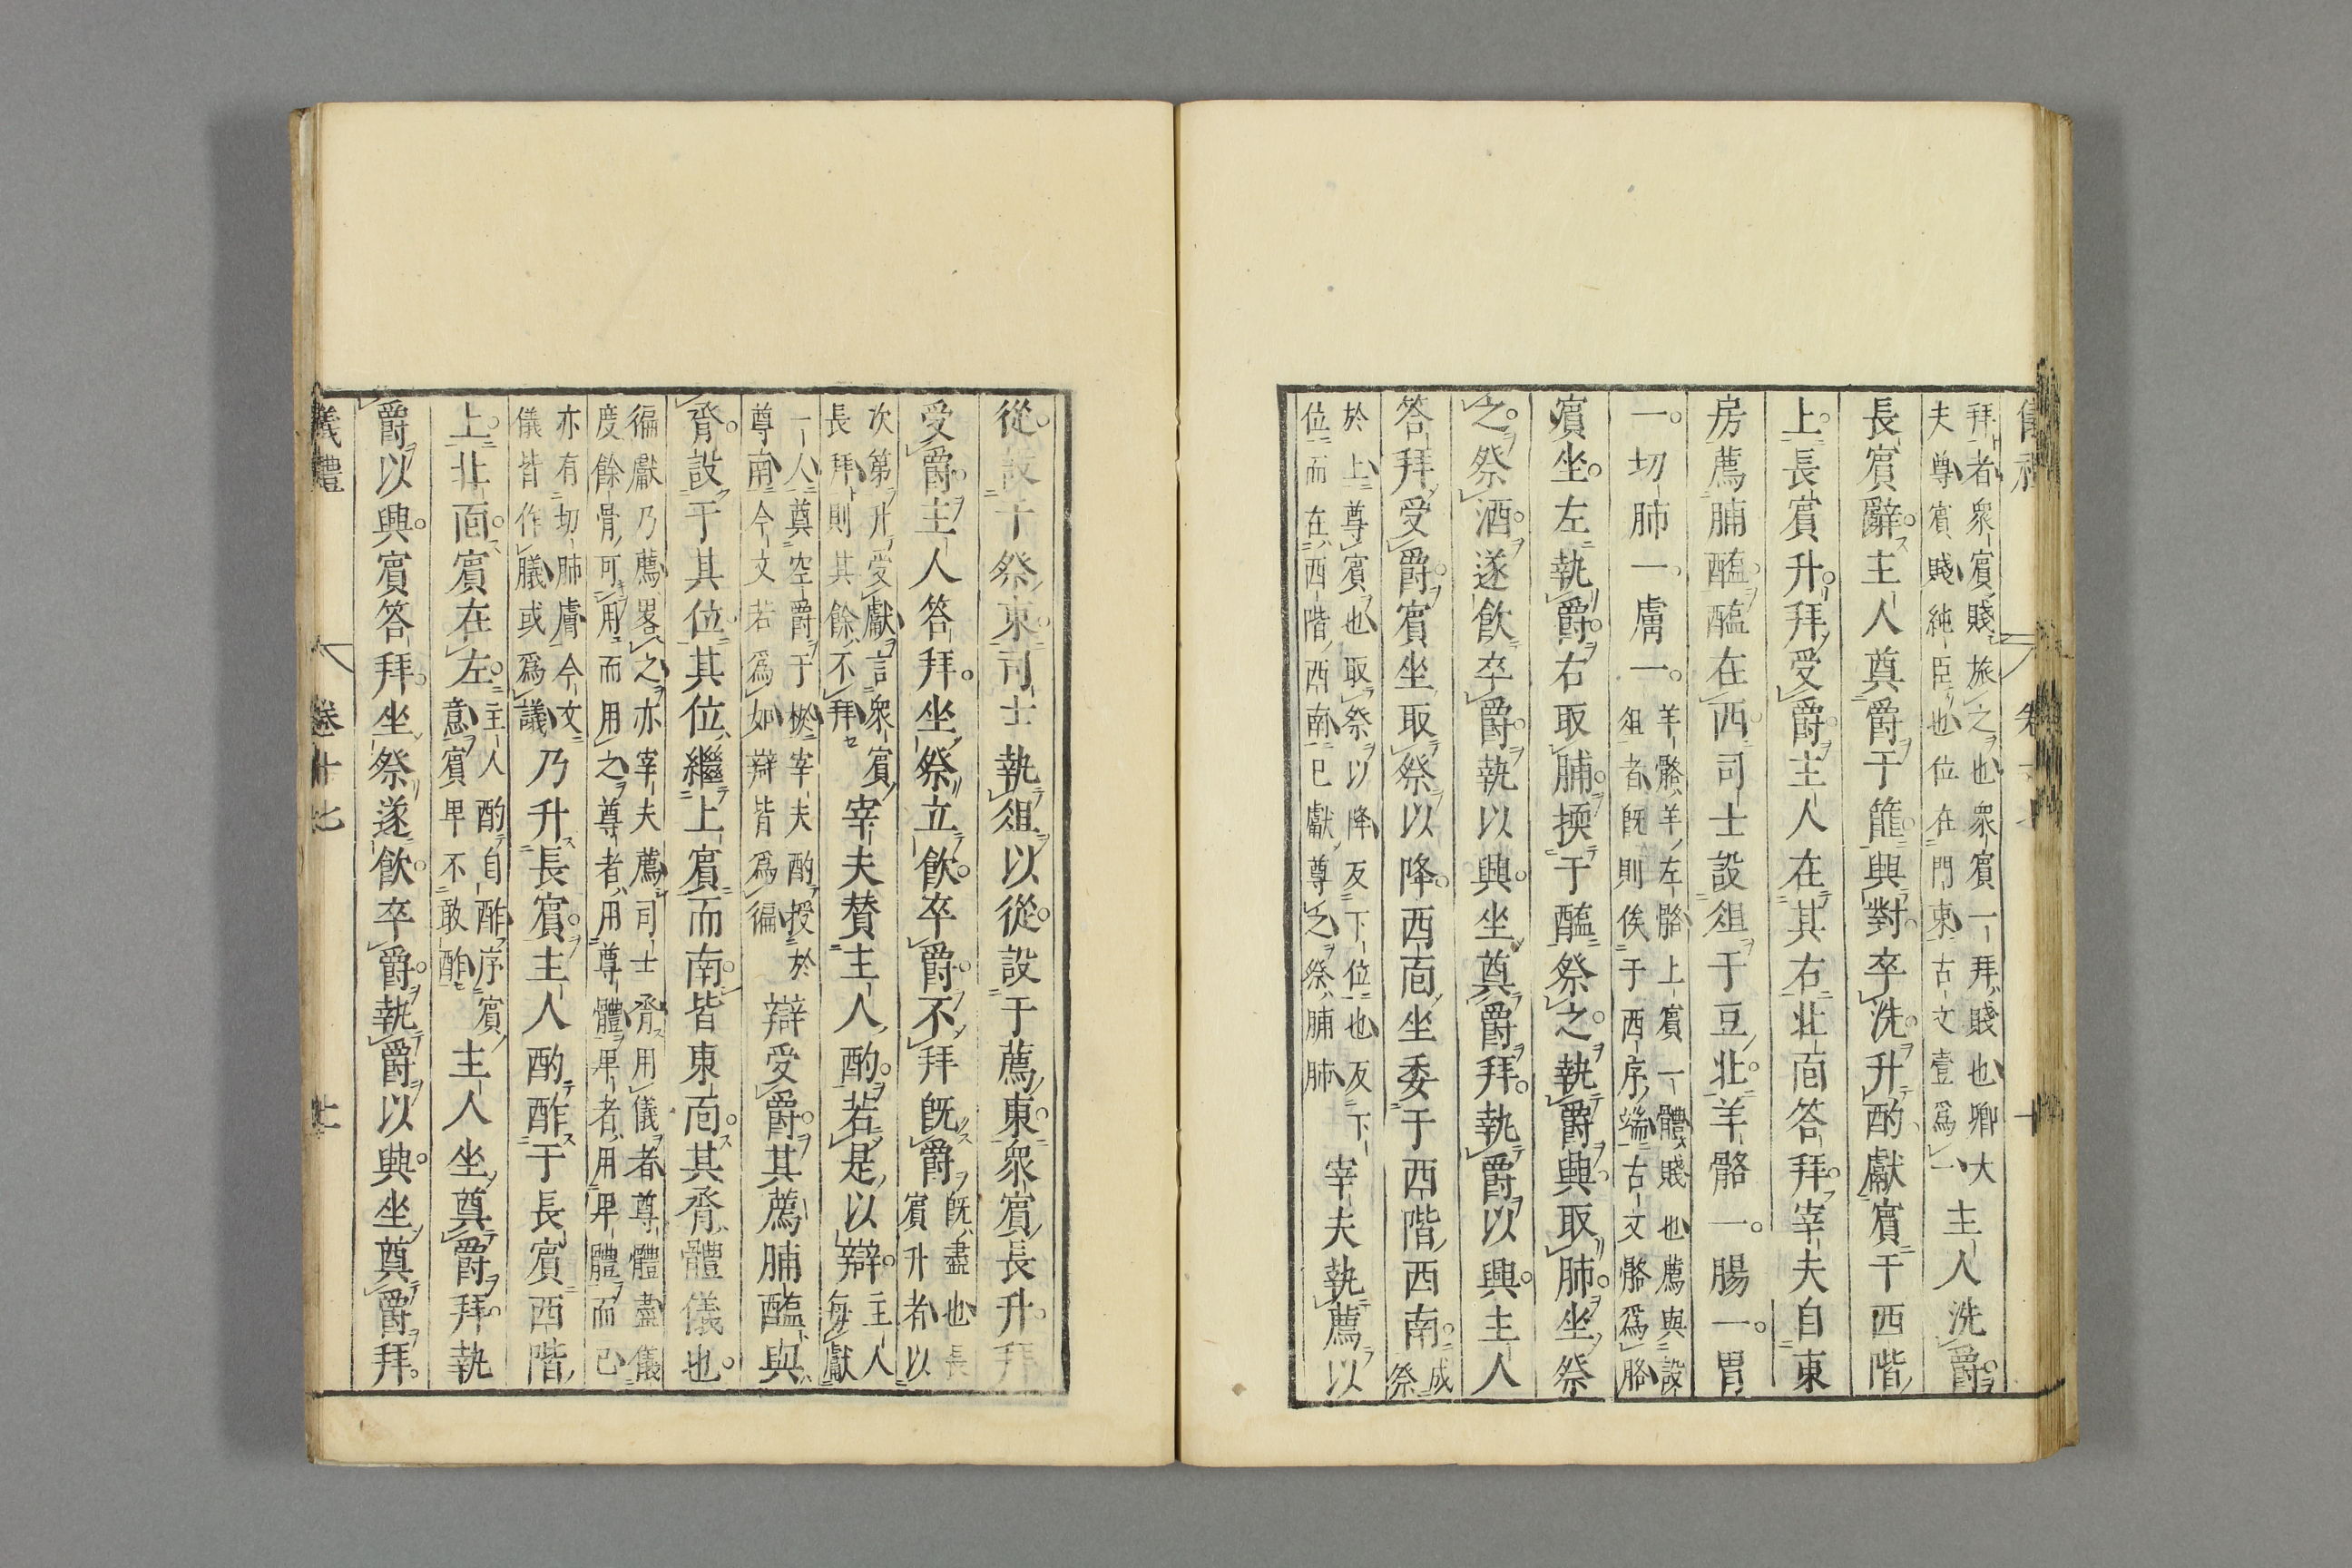 拜者衆賓賤旅之也衆賓一拜賤也卿大
夫尊賓賤純臣也位在門東古文壹爲一
主人洗爵
長賓辭主人奠爵于篚興對卒洗升酌獻賓于西階
上長賓升拜受爵主人在其右北面答拜宰夫自東
房薦脯醢醢在西司士設俎于豆北羊骼一腸一胃
一切肺一膚一
羊骼羊左骼上賓一體賤也薦與設
俎者旣則俟于西序端古文骼爲胳
賓坐左執爵右取脯擩于醢祭之執爵興取肺坐祭
之祭酒遂飮卒爵執以興坐奠爵拜執爵以興主人
答拜受爵賓坐取祭以降西面坐委于西階西南
成
祭
於上尊賓也取祭以降反下位也反下
位而在西階西南已獻尊之祭脯肺
宰夫執薦以
從設于祭東司士執俎以從設于薦東衆賓長升拜
受爵主人答拜坐祭立飮卒爵不拜旣爵
旣盡也長
賓升者以
次第升受獻言衆賓
長拜則其餘不拜
宰夫贊主人酌若是以辯
主人
每獻
一人奠空爵于棜宰夫酌授於
尊南今文若爲如辯皆爲徧
辯受爵其薦脯醢與
脀設于其位其位繼上賓而南皆東面其脀體儀也
徧獻乃薦畧之亦宰夫薦司士脀用儀者尊體盡儀
度餘骨可用而用之尊者用尊體卑者用卑體而已
亦有切肺膚今文
儀皆作䑄或爲議
乃升長賓主人酌酢于長賓西階
上北面賓在左
主人酌自酢序賓
意賓卑不敢酢
主人坐奠爵拜執
爵以興賓答拜坐祭遂飮卒爵執爵以興坐奠爵拜
儀禮 卷十七 十一